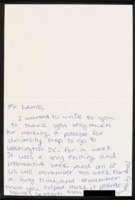 Mr. Lamb,
I wanted to write to you
to thank you very much
for making it possible for
university prep to go to
Washington DC. for a week
It was a very exciting and
informative week and all of
us will remember this week for
a long time and remember
that you helped make it possible